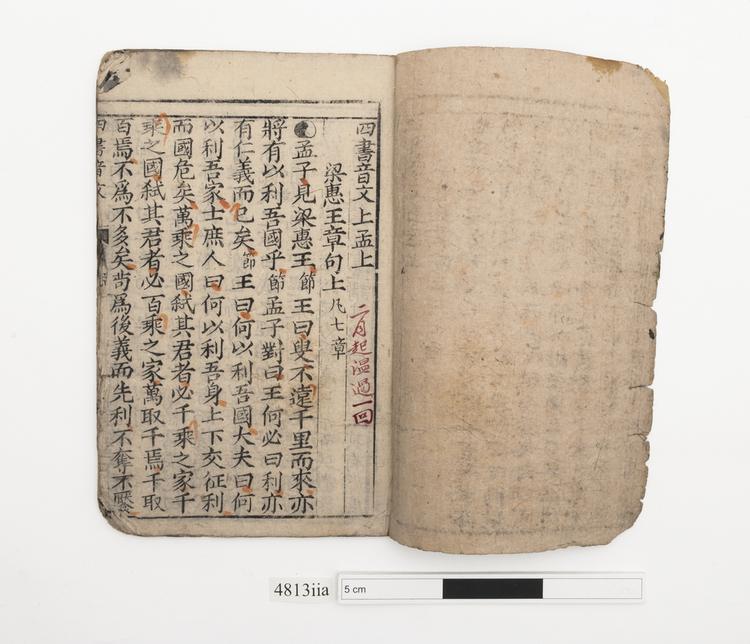 四書音文上孟上
二月起溫過一回
梁惠王章句上凡七章
孟子見梁惠王節王曰叟不遠千里而來亦
將有以利吾國乎節孟子對曰王何必曰利亦
有仁義而已矣節王曰何以利吾國大夫曰何
以利吾家士庶人曰何以利吾身上下交征利
而國危矣萬乘之國弑其君者必千乘之家千
乘之國弑其君者必百乘之家萬取千焉千取
百焉不為不多矣苟為後義而先利不奪不饜
四書音文
4813iia
5 cm